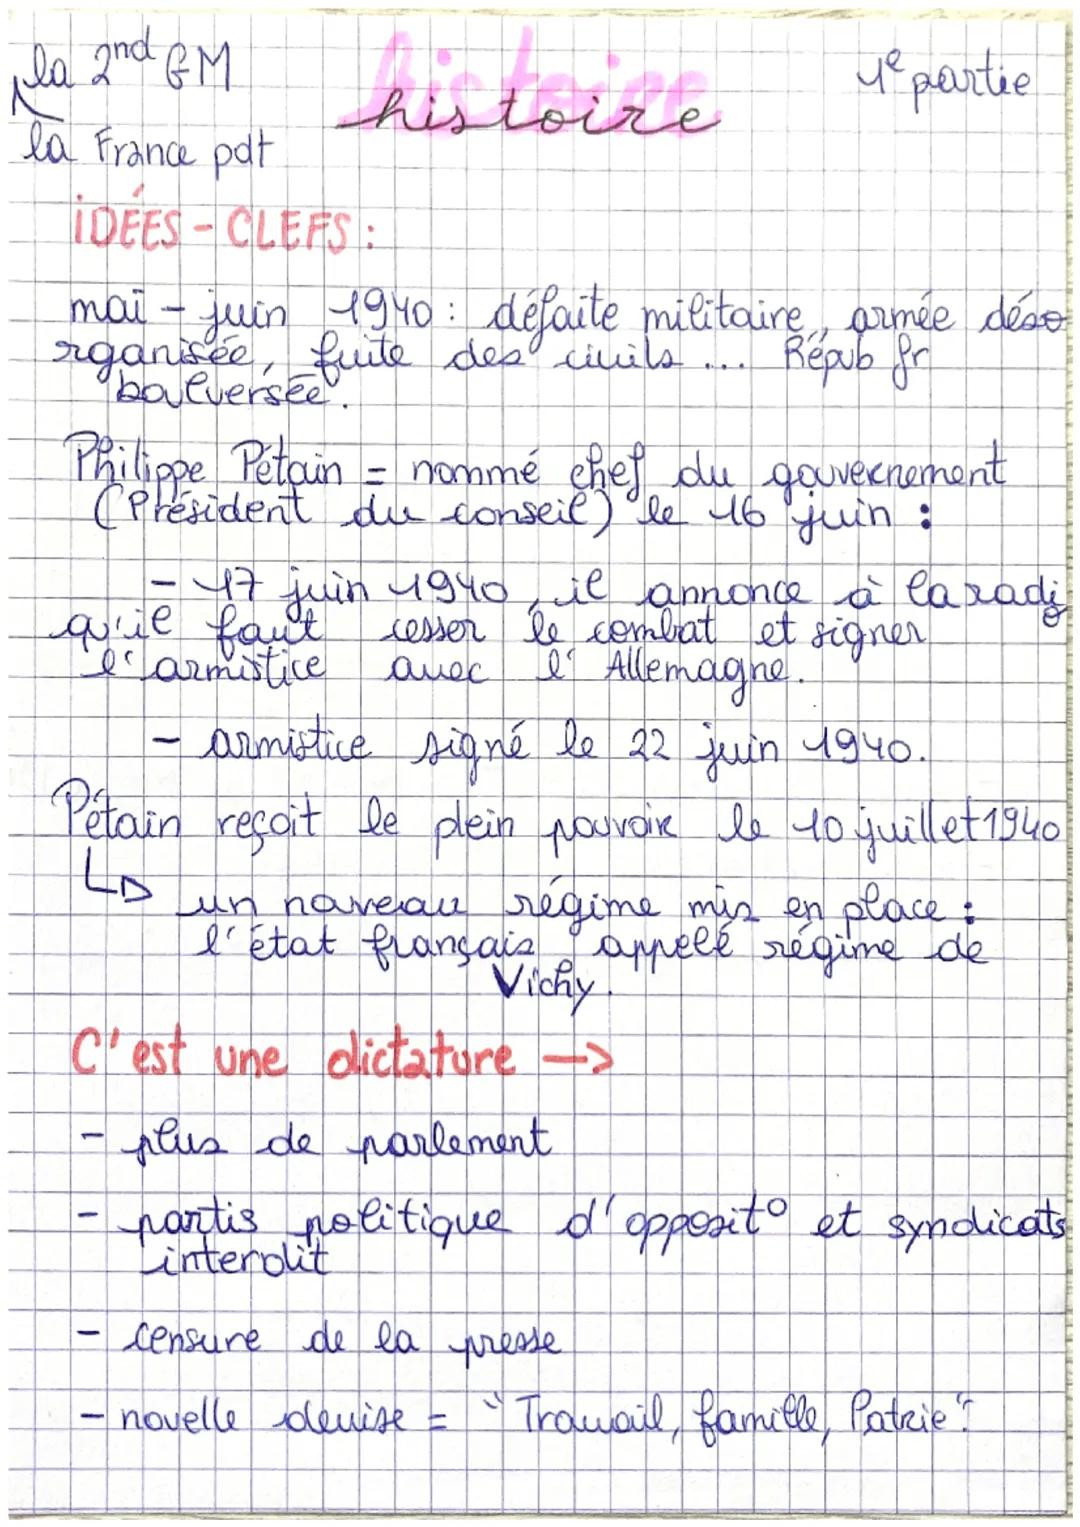 la 2nd GM
histoire
1e partie
la France pdt
IDÉES - CLEFS :
mai - juin 1940 : défaite militaire, armée déso
rganisée, fuite des civils ... Répub fr
boulversée.
Philippe Pétain = nommé chef du gouvernement
(Président du conseil) le 16 juin :
- 17 juin 1940, il annonce à la radio
qu'il faut cesser le combat et signer
l'armistice avec l'Allemagne.
- armistice signé le 22 juin 1940.
Pétain reçoit le plein pouvoir le 10 juillet 1940
un nouveau régime mis en place :
l'état français, appelé régime de
Vichy.
C'est une dictature -->
- plus de parlement
- partis politique d'opposit° et syndicats
interdit
- censure de la presse
- novelle devise = "Travail, famille, Patrie".